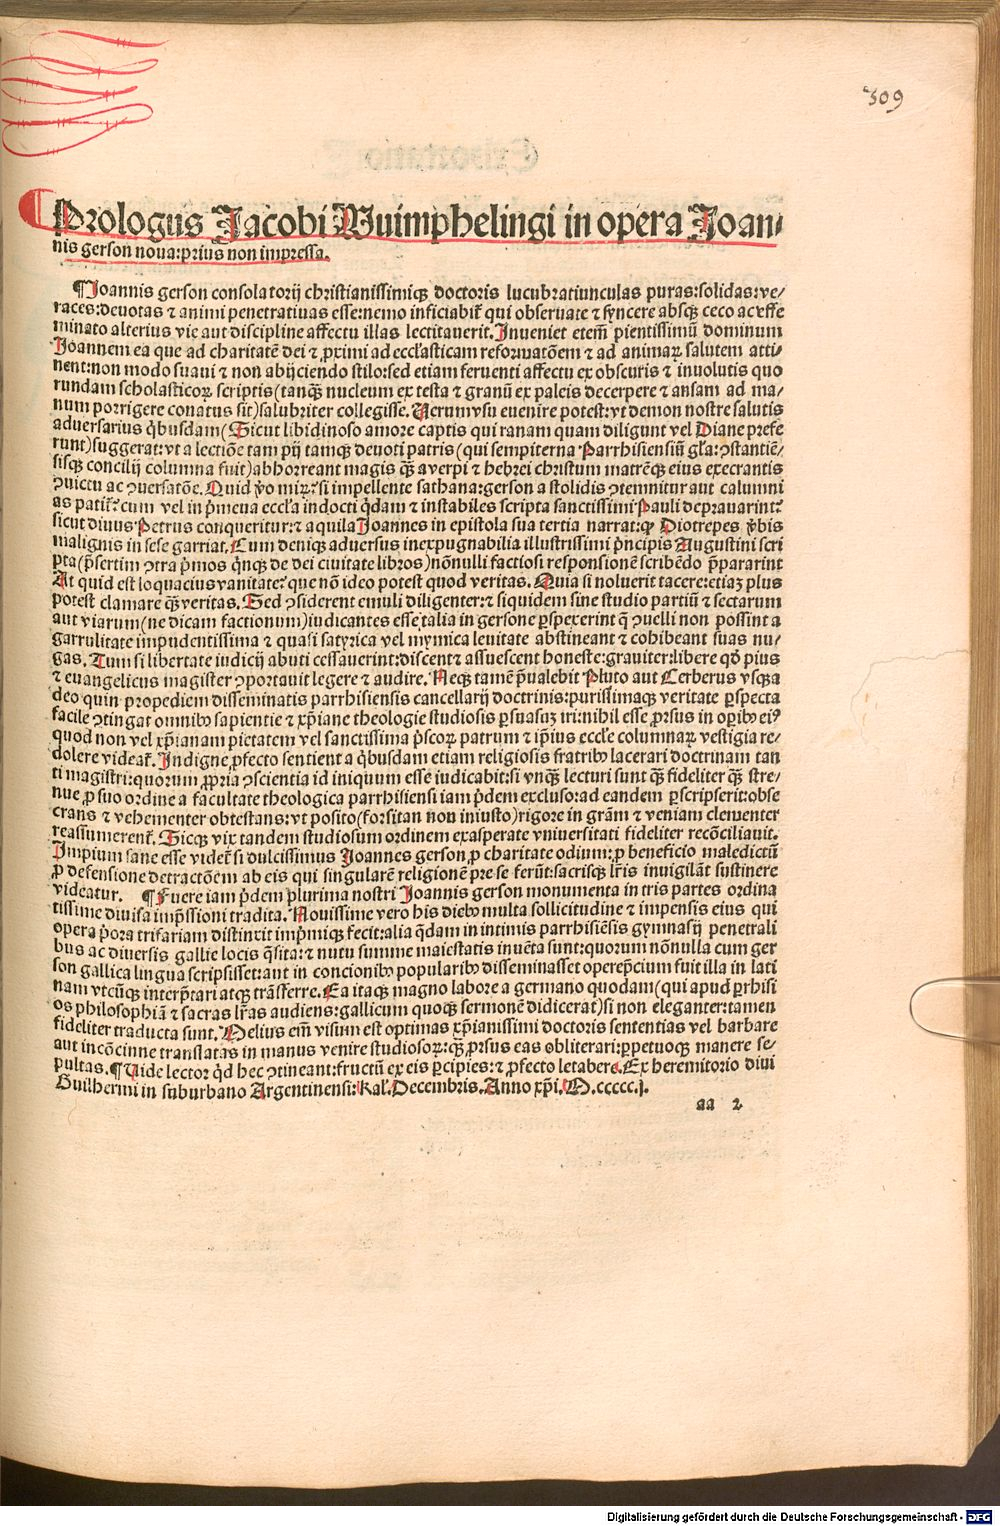 309
Prologus Jacobi Wuimphelingi in opera Joan⸗
nis gerson noua:prius non impressa.
¶Joannis gerson consolatorij christianissimiqꝫ doctoris lucubratiunculas puras:solidas:ve⸗
races:deuotas ⁊ animi penetratiuas esse:nemo inficiabit̃ qui obseruate ⁊ syncere absqꝫ ceco ac effe
minato alterius vie aut discipline affectu illas lectitauerit. Inueniet etem̃ pientissimũ dominum
Joannem ea que ad charitatẽ dei ⁊ ꝓximi ad ecclãsticam reformatõem ⁊ ad animaꝝ salutem atti⸗
nent:non modo suaui ⁊ non abijciendo stilo:sed etiam feruenti affectu ex obscuris ⁊ inuolutis quo
rundam scholasticoꝝ scriptis(tanqꝫ̃ nucleum ex testa ⁊ granũ ex paleis decerpere ⁊ ansam ad ma⸗
num porrigere conatus sit)salubriter collegisse. Uerum vsu euenire potest:vt demon nostre salutis
aduersarius q̊busdam(Sicut libidinoso amore captis qui ranam quam diligunt vel Diane prefe
runt)suggerat:vt a lectiõe tam pij tamqꝫ deuoti patris(qui sempiterna Parrhisiensiũ gl̃a:ꝯstantiẽ⸗
sisqꝫ concilij columna fuit)abhorreant magis qꝫ̃ a verpi ⁊ hebrei christum matrẽqꝫ eius execrantis
ꝯuictu ac ꝯuersatõe. Quid v̊o miꝝ?si impellente sathana:gerson a stolidis ꝯtemnitur aut calumni
as patit̃?cum vel in p̊meua eccl̃a indocti q̊dam ⁊ instabiles scripta sanctissimi Pauli deprauarint?
sicut diuus Petrus conqueritur:⁊ aquila Joannes in epistola sua tertia narrat:ꝙ Diotrepes v̊bis
malignis in sese garriat. Cum deniqꝫ aduersus inexpugnabilia illustrissimi p̊ncipis Augustini scri
pta(p̃sertim ꝯtra p̊mos q̊nqꝫ de dei ciuitate libros)nõnulli factiosi responsionẽ scribẽdo p̃pararint
At quid est loquacius vanitate?que nõ ideo potest quod veritas. Quia si noluerit tacere:etiaꝫ plus
potest clamare qꝫ̃ veritas. Sed ꝯsiderent emuli diligenter:⁊ siquidem sine studio partiũ ⁊ sectarum
aut viarum(ne dicam factionum)iudicantes esse talia in gersone ꝑspexerint q̃ ꝯuelli non possint a
garrulitate impudentissima ⁊ quasi satyrica vel mymica leuitate abstineant ⁊ cohibeant suas nu⸗
gas. Tum si libertate iudicij abuti cessauerint:discent ⁊ assuescent honeste:grauiter:libere qd̓ pius
⁊ euangelicus magister ꝯportauit legere ⁊ audire. Neqꝫ tamẽ p̃ualebit Pluto aut Cerberus vsqꝫa
deo quin propediem disseminatis parrhisiensis cancellarij doctrinis:purissimaqꝫ veritate ꝑspecta
facile ꝯtingat omnibꝰ sapientie ⁊ xp̃iane theologie studiosis ꝑsuasuꝫ iri:nihil esse ꝓrsus in oꝑibꝰ eiꝰ
quod non vel xp̃ianam pietatem vel sanctissima p̊scoꝝ patrum ⁊ ip̃ius eccl̃e columnaꝝ vestigia re⸗
dolere videat̃. Indigne ꝓfecto sentient a q̊busdam etiam religiosis fratribꝰ lacerari doctrinam tan
ti magistri:quorum ꝓpria ꝯscientia id iniquum esse iudicabit:si vnqꝫ̃ lecturi sunt qꝫ̃ fideliter qꝫ̃ stre⸗
nue ꝓ suo ordine a facultate theologica parrhisiensi iam p̊dem excluso:ad eandem ꝑscripserit:obse
crans ⁊ vehementer obtestans:vt posito(forsitan non iniusto)rigore in grãm ⁊ veniam clementer
reassumerent̃. Sicqꝫ vix tandem studiosum ordinem exasperate vniuersitati fideliter recõciliauit.
Impium sane esse videt̃ si dulcissimus Joannes gerson ꝓ charitate odium:ꝓ beneficio maledictũ
ꝓ defensione detractõem ab eis qui singularẽ religionẽ pre se ferũt:sacrisqꝫ lr̃is inuigilãt sustinere
videatur. ¶Fuere iam p̊dem plurima nostri Joannis gerson monumenta in tris partes ordina
tissime diuisa imp̃ssioni tradita. Nouissime vero his diebꝰ multa sollicitudine ⁊ impensis eius qui
opera p̊ora trifariam distinxit imp̊miqꝫ fecit:alia q̊dam in intimis parrhisiẽsis gymnasij penetrali
bus ac diuersis gallie locis q̊sita:⁊ nutu summe maiestatis inuẽta sunt:quorum nõnulla cum ger
son gallica lingua scripsisset:aut in concionibꝰ popularibꝰ disseminasset operep̃cium fuit illa in lati
nam vtcũqꝫ interp̃tari atqꝫ trãsferre. Ea itaqꝫ magno labore a germano quodam(qui apud ꝑrhisi
os philosophiã ⁊ sacras lr̃as audiens:gallicum quoqꝫ sermonẽ didicerat)si non eleganter:tamen
fideliter traducta sunt. Melius em̃ visum est optimas xp̃ianissimi doctoris sententias vel barbare
aut incõcinne translatas in manus venire studiosoꝝ:qꝫ̃ ꝓrsus eas obliterari:ꝑpetuoqꝫ manere se⸗
pultas. ¶Uide lector q̊d hec ꝯtineant:fructũ ex eis ꝑcipies:⁊ ꝓfecto letabere. Ex heremitorio diui
Guilhermi in suburbano Argentinensi:Kal̃.Decembris.Anno xp̃i.M.ccccc.j.
aa 2
Digitalisierung gefördert durch die Deutsche Forschungsgemeinschaft - DFG